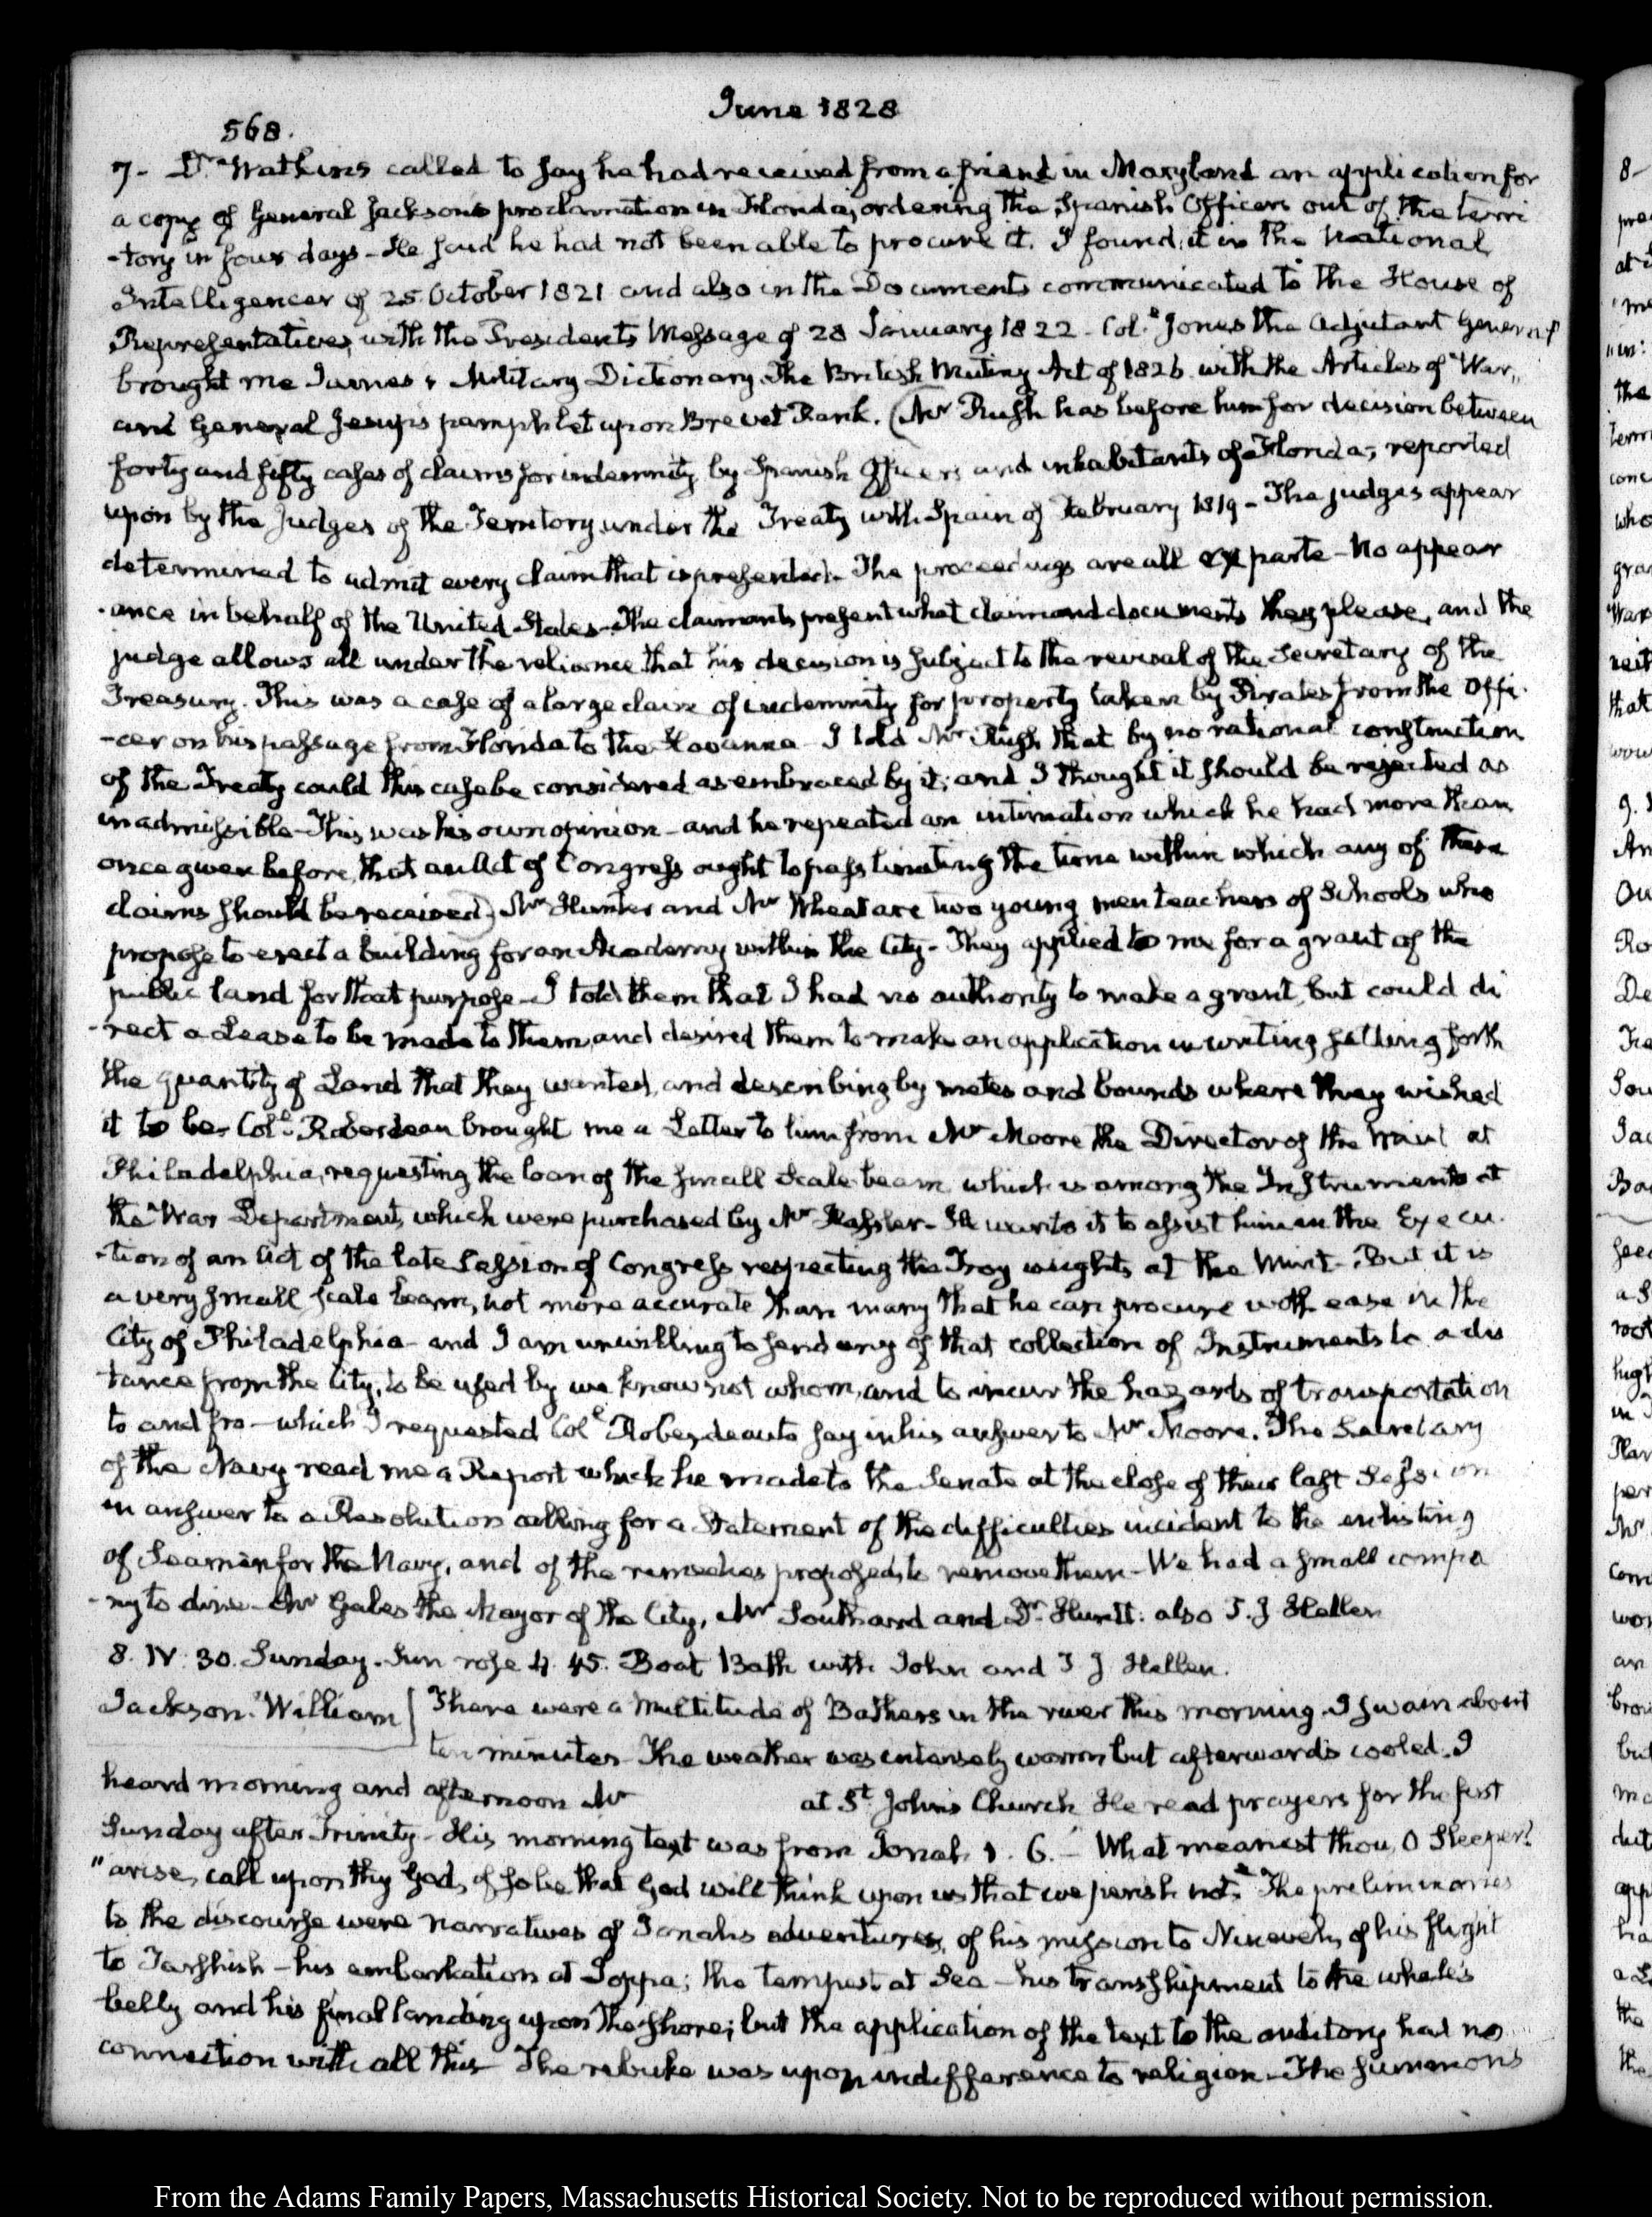 June 1828
568.
7- Dr. Watkins called to say he had received from a friend in Maryland an application for
a copy of General Jackson's proclamation in Florida, ordering the Spanish Officers out of the terri
-tory in four days- He said he had not been able to procure it. I found it in the National
Intelligencer of 25 October 1821 and also in the Documents communicated to the House of
Representatives, with the President's Message of 28 January 1822. Coll. Jones the Adjutant General
brought me James's Military Dictionary. The British Mutiny Act of 1826 with the Articles of War,
and General Jesup's pamphlet upon Brevet Rank. (Mr Rush has before him for decision between
forty and fifty cases of claims for indemnity by Spanish Officers and inhabitants of Florida; reported
upon by the Judges of the Territory under the Treaty with Spain of February 1819- The judges appear
determined to admit every claim that is presented- The proceedings are all ex parte- No appear
-ance in behalf of the United States- The claimants present what claim and documents they please, and the
judge allows all under the reliance that his decision is subject to the revisal of the Secretary of the
Treasury. This was a case of a large claim of indemnity for property taken by Pirates from the Offi-
-cer on his passage from Florida to the Havanna- I told Mr Rush that by no rational construction
of the Treaty could this case be considered as embraced by it; and I thought it should be rejected as
inadmissible- This was his own opinion- and he repeated an intimation which he had more than
once given before, that an Act of Congress ought to pass limiting the time within which any of these
claims should be received) Mr Hunter and Mr Wheat are two young men teachers of Schools who
propose to erect a building for an Academy within the City- They applied to me for a grant of the
public land for that purpose- I told them that I had no authority to make a grant, but could di
-rect a Lease to be made to them, and desired them to make an application in writing setting forth
the quantity of Land that they wanted, and describing by metes and bounds where they wished
it to be- Coll. Roberdeau brought me a Letter to him from Mr Moore the Director of the Mint at
Philadelphia, requesting the loan of the small Scale beam which is among the Instruments at
the War Department, which were purchased by Mr Hassler- He wants it to assist him in the Execu-
-tion of an Act of the late Session of Congress respecting the Troy weights at the Mint- But it is
a very small scale beam, not more accurate than many that he can procure with ease in the
City of Philadelphia- and I am unwilling to send any of that collection of Instruments to a dis
tance from the City, to be used by we know not whom, and to incur the hazards of transportation
to and fro- which I requested Coll Roberdeau to say in his answer to Mr Moore. The Secretary
of the Navy read me a Report which he made to the Senate at the close of their last Session
in answer to a Resolution calling for a Statement of the difficulties incident to the enlisting
of Seamen for the Navy, and of the remedies proposed to remove them- We had a small compa
-ny to dine- Mr Gales the Mayor of the City, Mr Southard and Dr. Huntt: also J. J Hellen
8. IV. 30. Sunday. Sun rose 4.45. Boat Bath with John and J J. Hellen.
Jackson. William
There were a multitude of Bathers in the river this morning- I swam about
ten minutes- The weather was intensely warm but afterwards cooled. I
heard morning and afternoon Mr at St. John's Church He read prayers for the first
Sunday after Trinity- His morning text was from Jonah 1. 6.- What meanest thou, O Sleeper?
"arise, call upon thy God, if so be that God will think upon us that we perish not." The preliminaries
to the discourse were narratives of Jonah's adventures, of his mission to Nineveh, of his flight
to Tarshish- his embarkation at Joppa; the tempest at Sea- his transhipment to the whale's
belly and his final landing upon the shore; but the application of the text to the auditory had no
connection with all this- The rebuke was upon indifference to religion- The summons
From the Adams Family Papers, Massachusetts Historical Society. Not to be reproduced without permission.